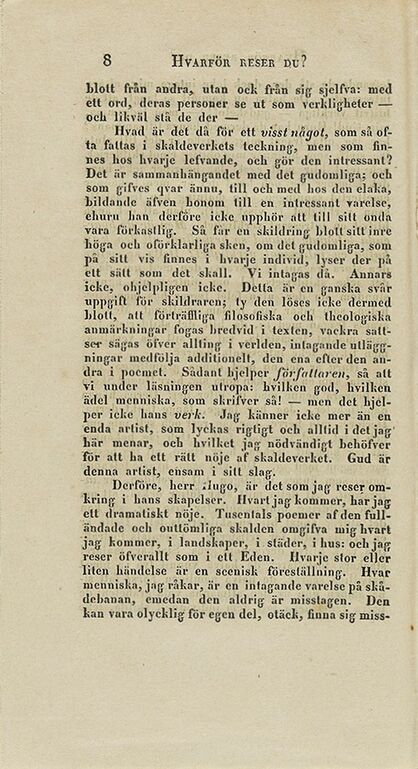 8 HVARFÖR RESER DU?
blott från andra, utan ock från sig sjelfva: med
ett ord, deras personer se ut som verkligheter —
och likväl stå de der —
Hvad är det då för ett visst något, som så of-
ta fattas i skaldeverkets teckning, men som fin-
nes hos hvarje lefvande, och gör den intressant?
Det är sammanhängandet med det gudomliga; och
som gifves qvar ännu, till och med hos den elaka,
bildande äfven honom till en intressant varelse,
ehuru han derföre icke upphör att till sitt onda
vara förkastlig. Så får en skildring blott sitt inre
höga och oförklarliga sken, om det gudomliga, som
på sitt vis finnes i hvarje individ, lyser der på
ett sätt som det skall. Vi intagas då. Annars
icke, ohjelpligen icke. Detta är en ganska svår
uppgift för skildraren; ty den löses icke dermed
blott, att förträffliga filosofiska och theologiska
anmärkningar fogas bredvid i texten, vackra satt-
ser sägas öfver allting i verlden, intagande utlägg-
ningar medfölja additionelt, den ena efter den an-
dra i poemet. Sådant hjelper författaren, så att
vi under läsningen utropa: hvilken god, hvilken
ädel menniska, som skrifver så! — men det hjel-
per icke hans verk. Jag känner icke mer än en
enda artist, som lyckas rigtigt och alltid i det jag
här menar, och hvilket jag nödvändigt behöfver
för att ha ett rätt nöje af skaldeverket. Gud är
denna artist, ensam i sitt slag.
Derföre, herr Hugo, är det som jag reser om-
kring i hans skapelser. Hvart jag kommer, har jag
ett dramatiskt nöje. Tusentals poemer af den full-
ändade och outtömliga skalden omgifva mig hvart
jag kommer, i landskaper, i städer, i hus: och jag
reser öfverallt som i ett Eden. Hvarje stor eller
liten händelse är en scenisk föreställning. Hvar
menniska, jag råkar, är en intagande varelse på skå-
debanan, emedan den aldrig är misstagen. Den
kan vara olycklig för egen del, otäck, finna sig miss-